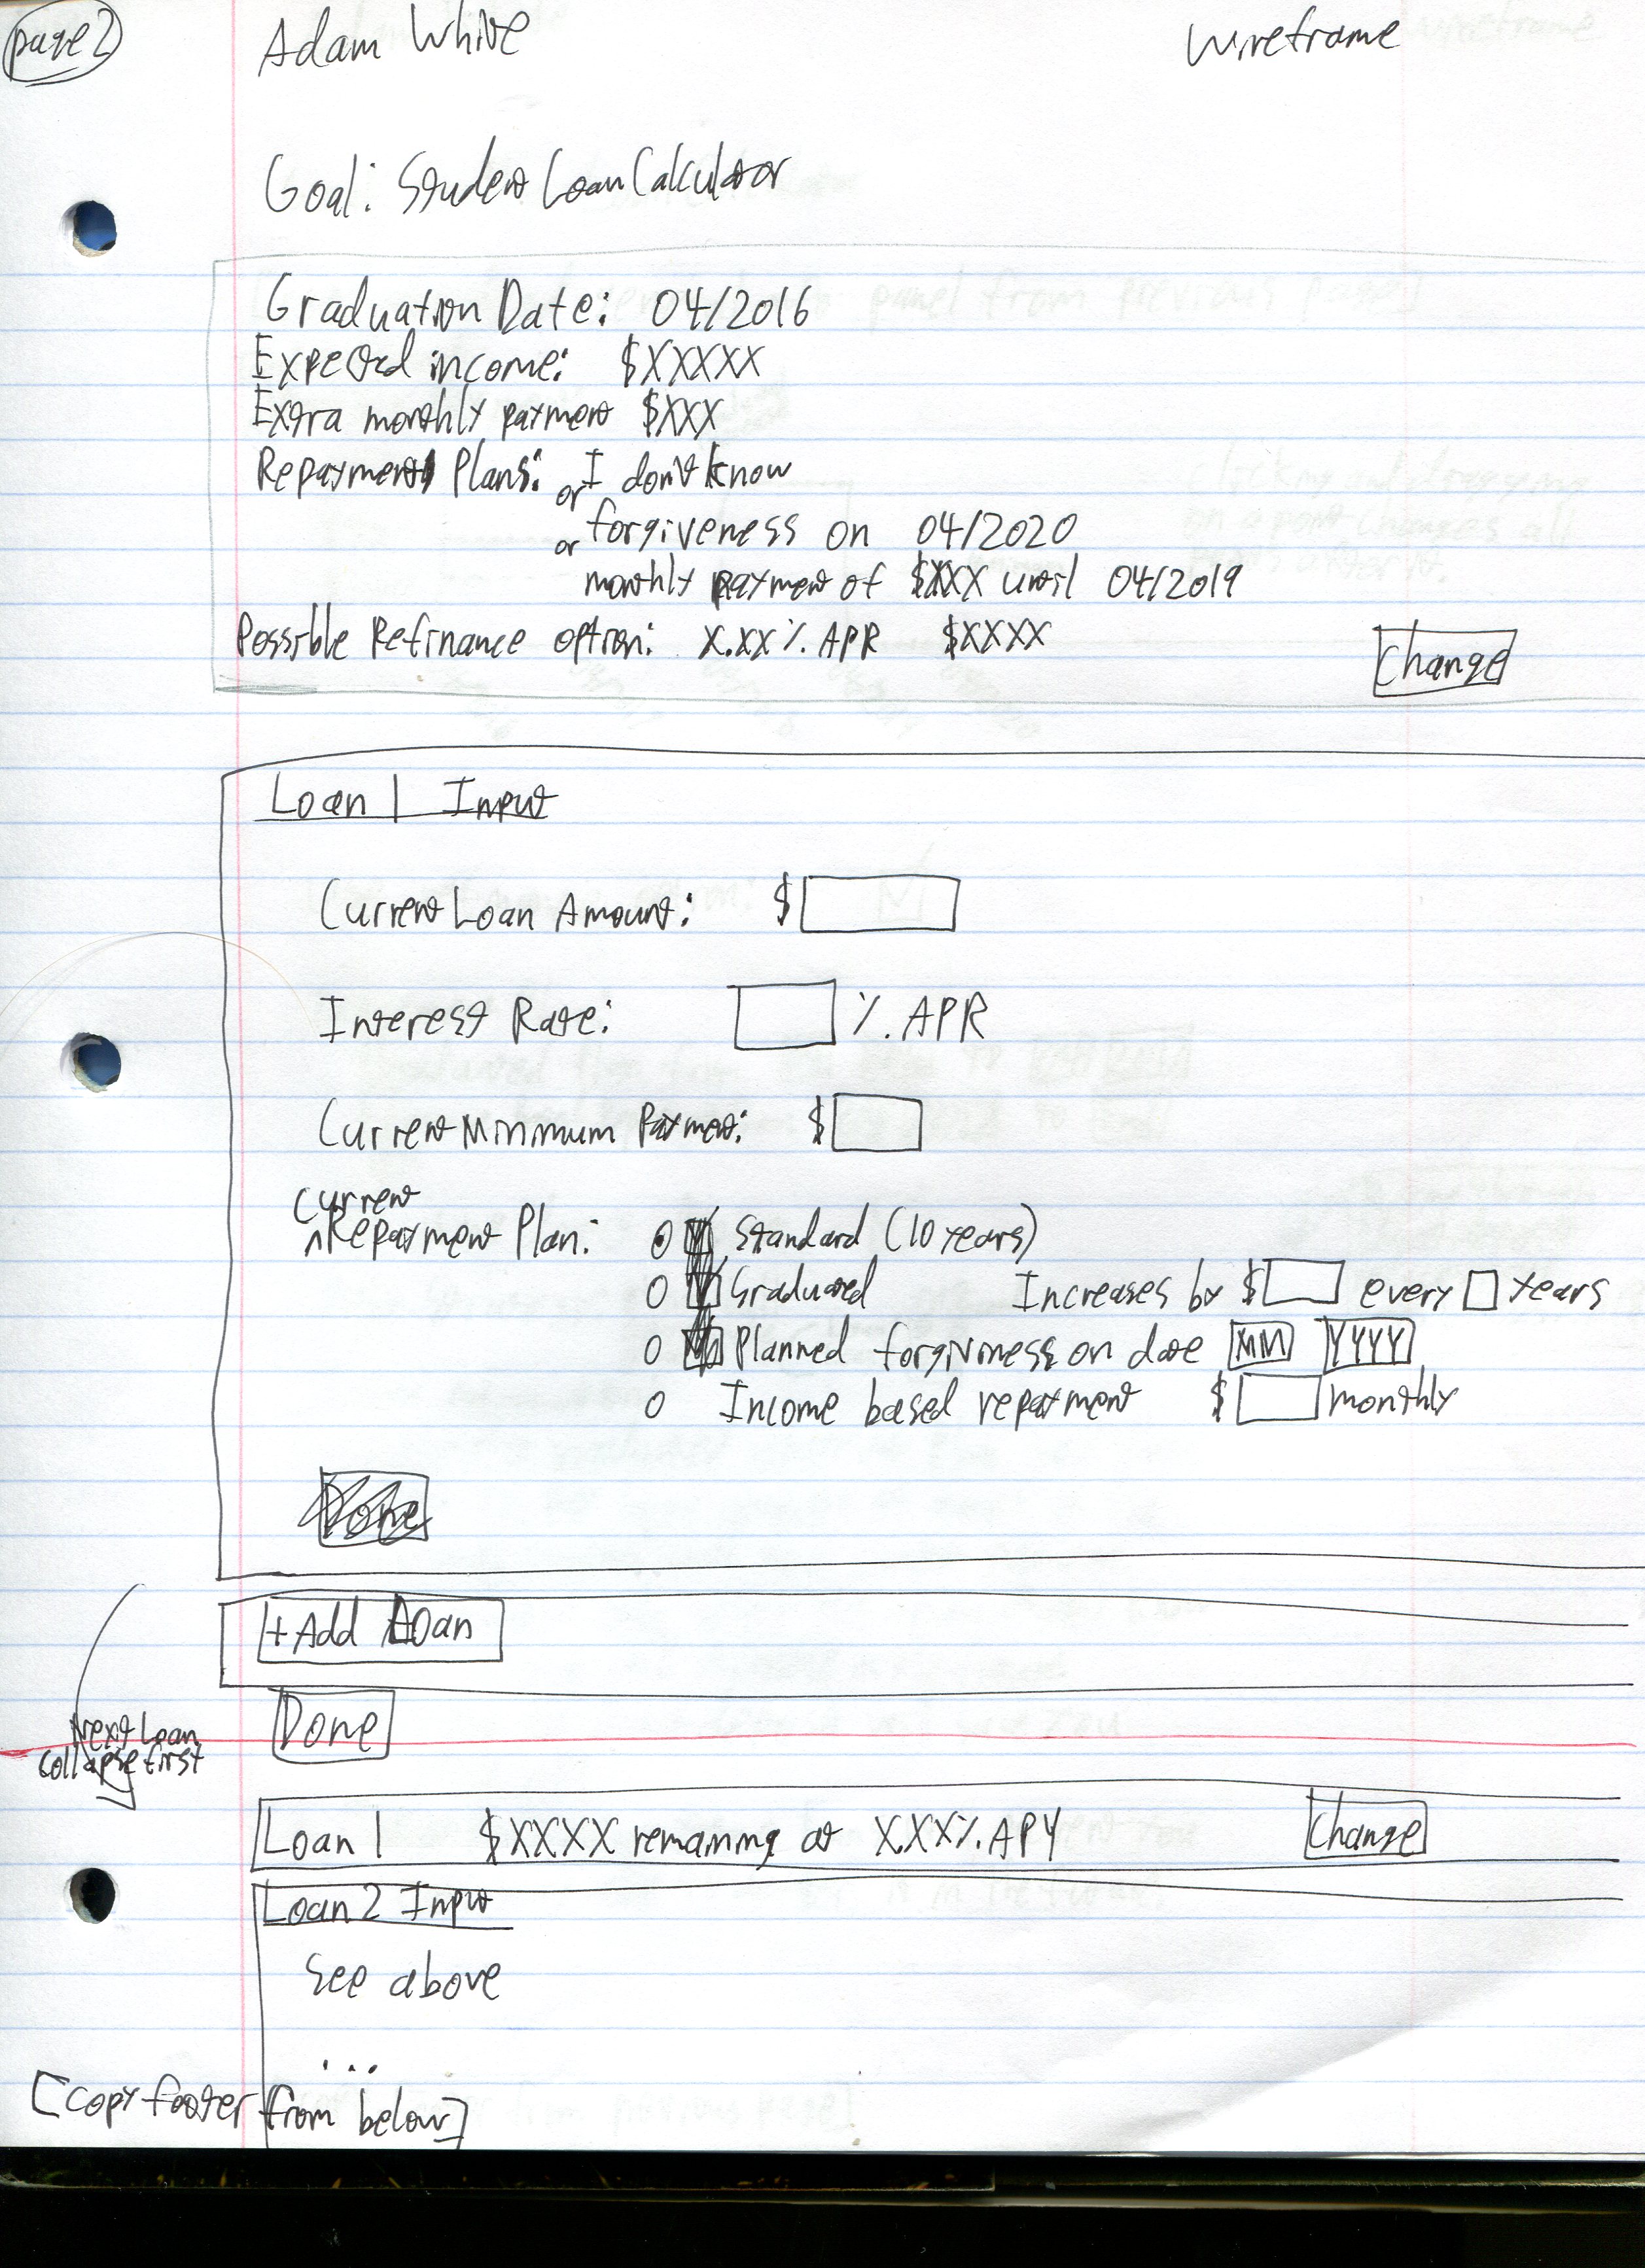 page 2 Adam White Wireframe
Goal: Student Loan Calculator
Graduation Date: 04/2016
Expected income: $XXXXX
Extra monthly payment $XXX
Repayment Plans: I don't know
or forgiveness on 04/2020
or monthly payment of $XXX until 04/2019
Possible Refinance option: X.XX% APR $XXXX
Change
Loan 1 Input
Current Loan Amount: $
Interest Rate: % APR
Current Minimum Payment: $
Current
^Repayment Plan: Standard (10 years)
Graduated Increases by $ every years
Planned forgiviness on date MM YYYY
Income based repayment $ monthly
Done
+Add Loan
Done
Next Loan
collapse first
Loan 1 $XXXX remaining at X.XX% APY Change
Loan 2 Input
See above
...
[copy footer from below]